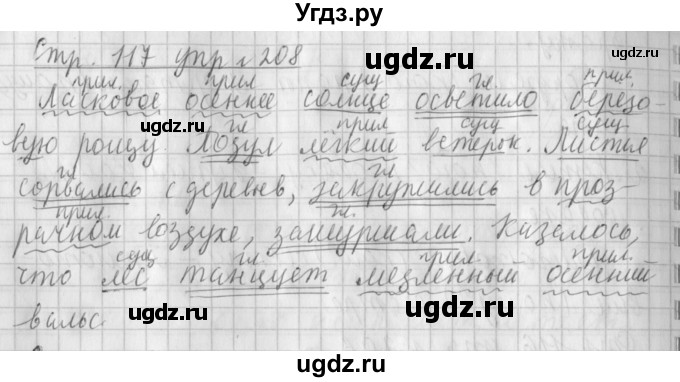 Угдз.ру
Стр. 117 упр № 208
ugdz.ru
прил. прил сущ гл. прил.
Ласковое осеннее солнце осветило берёзо-
ugdz.ru ugdz.ru
гл прил сущ сущ
вую рощу. Подул лёгкий ветерок. Листья
гл. гл
сорвались с деревьев, закружились в проз-
прил. гл.
рачном воздухе, зашуршали. Казалось,
ugdz.ru
сущ гл. прил. прил.
что лес танцует медленный осенний
ugdz.ru ugdz.ru
вальс.
ugdz.ru